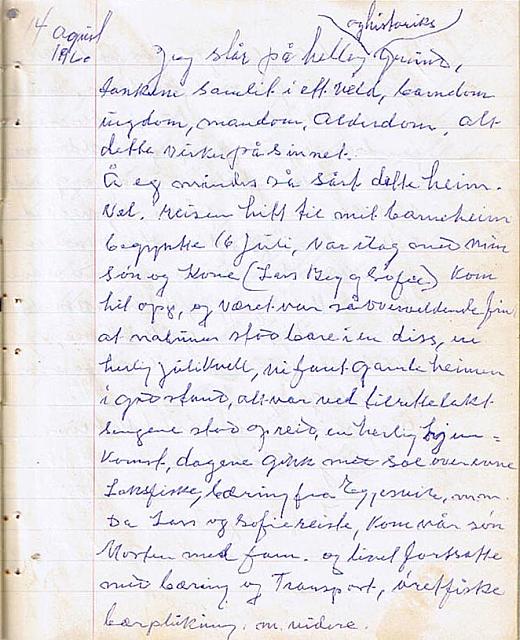 14 august
og historiks
Jeg står på hellig Grund,
tankene samlit i ett veld, barndom
ungdom, mandom, Alderdom, alt
dette virker på sinnet.
Å eg mindes så sårt dette heim.
Vel. reisen hitt til mit barneheim
begynte 16 juli, var ilag med min
søn og Kone (Lars Berg og Sofie) Kom
hit opp, og været var så overveldende fin
at naturen stod bare i en diss, en
herlig julikvell, vi fant gamle heimen
i god stand, alt var ved tilrettelakt
sengene stod opreid, en herlig hjem=
komst, dagene gikk med sol over evne
Laksfiske, bæring fra m.m.
Da Lars og Sofie reiste, kom vår søn
Morten med fam. og livet fortsatte
med bæring og Transport, øretfiske
bærplukning. m. videre.